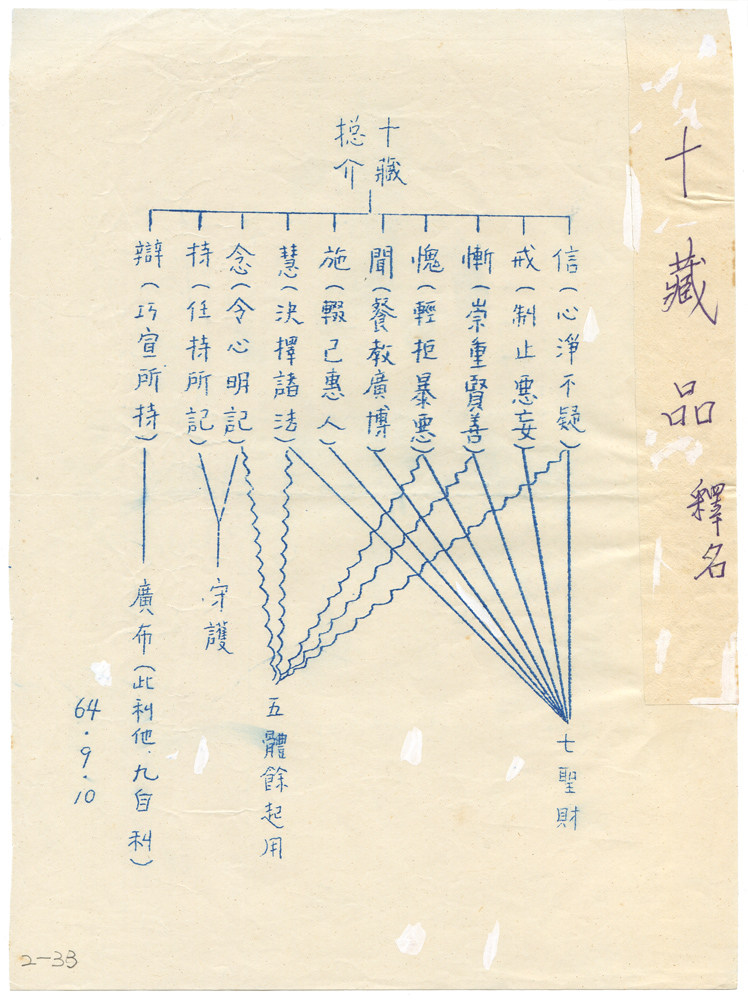 十藏品釋名
十藏
揔介
信（心淨不疑）
戒（制止悪妄）
慚（崇重賢善）
愧（輕拒暴悪）
聞（餐教廣博）
施（輟己惠人）
慧（決擇諸法）
念（令心明記）
持（任持所記）
辯（巧宣所持）
七聖財
五體餘起用
守護
廣布（此利他．九自利）
64.9.10
2-33